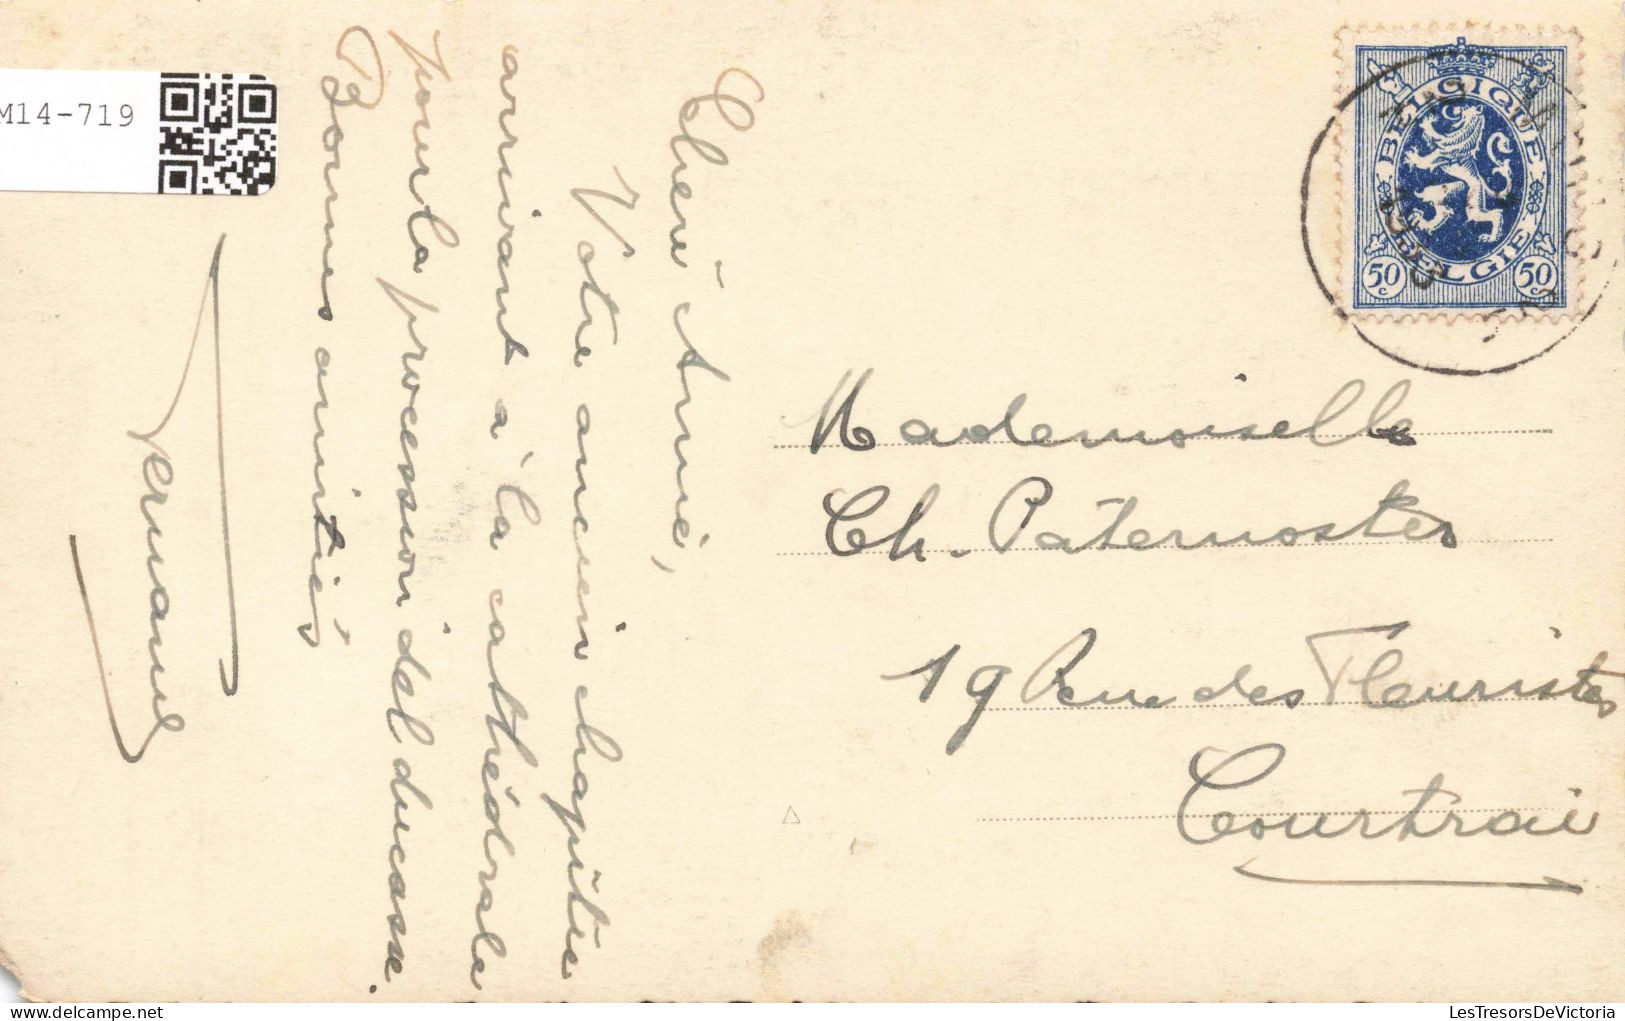 M14-719
Chère Aimée,
Votre ancien chapitre
arrivant à la cathédrale
pour la procession del ducasse.
Bonnes amitiés
Germaine
BELGIQUE
BELGIE
50 c
50 c
Mademoiselle
Ch. Paternoster
19 Rue des Fleuristes
Courtrai
LesTresorsDeVictoria